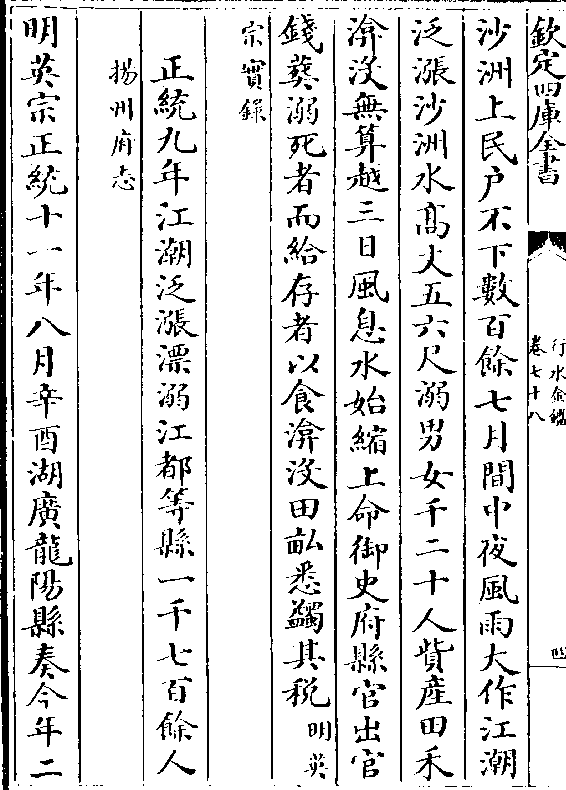 欽定四庫全書
行水金鑑
卷七十八
四
沙洲上民户不下數百餘七月間中夜風雨大作江潮
泛漲沙洲水髙丈五六尺溺男女千二十人貲産田禾
渰沒無算越三日風息水始縮上命御史府縣官出官
錢葬溺死者而給存者以食渰沒田畝悉蠲其税明英
宗實錄
正統九年江潮泛漲漂溺江都等縣一千七百餘人
揚州府志
明英宗正統十一年八月辛酉湖廣龍陽縣奏今年二